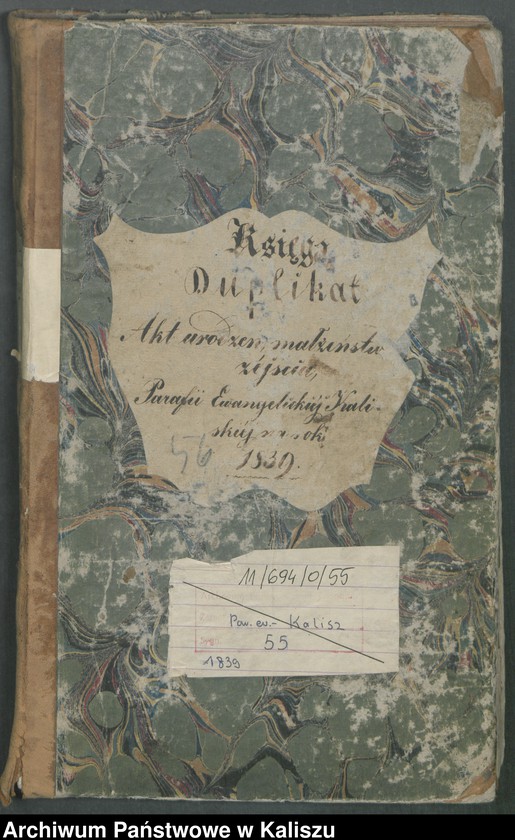 Księga
Duplikat
Akt urodzeń, małżeństw
zéjścia,
Parafii Ewanyelickiéj Kali-
skiéj na rok
1839.
56
11/694/0/55
Par. ev. - Kalisz
55
1839
Archiwum Państwowe w Kaliszu